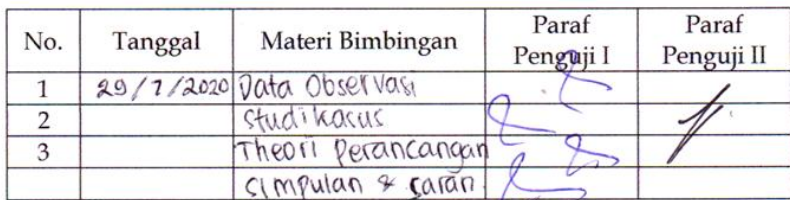 No. Tanggal Materi Bimbingan Paraf Penguji I Paraf Penguji II
1 29/7/2020 Data Observasi
2 Studi kasus
3 Theori Perancangan
Simpulan & saran